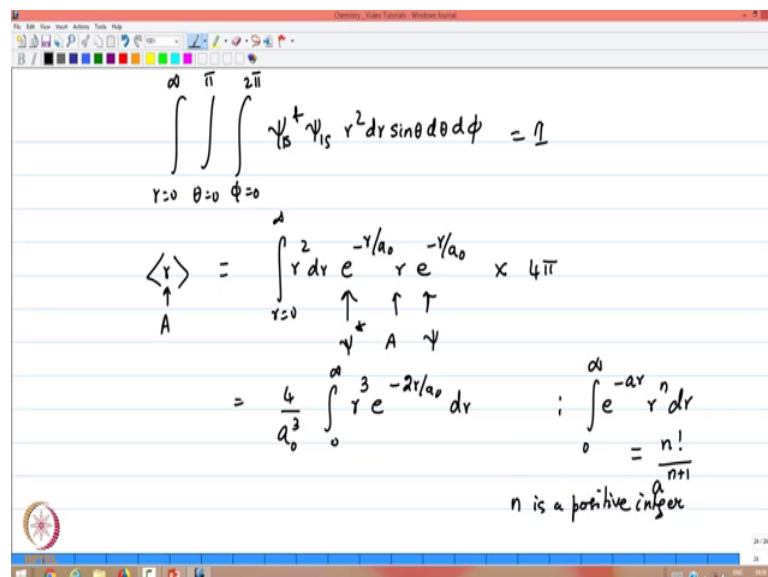 Chemistry _ Video Tutorials - Windows Journal
File Edit View Insert Actions Tools Help
∞ π 2π
∫ ∫ ∫ ψ1s* ψ1s r² dr sinθ dθ dϕ = 1
r=0 θ=0 ϕ=0
<r> = ∫_{r=0}^{∞} r² dr e^{-r/a₀} r e^{-r/a₀} × 4π
↑ ↑ ↑ ↑
A ψ* A ψ
= 4/a₀³ ∫_0^∞ r³ e^{-2r/a₀} dr : ∫_0^∞ e^{-ar} rⁿ dr
= n!/a^{n+1}
n is a positive integer
NPTEL
24 / 24
24